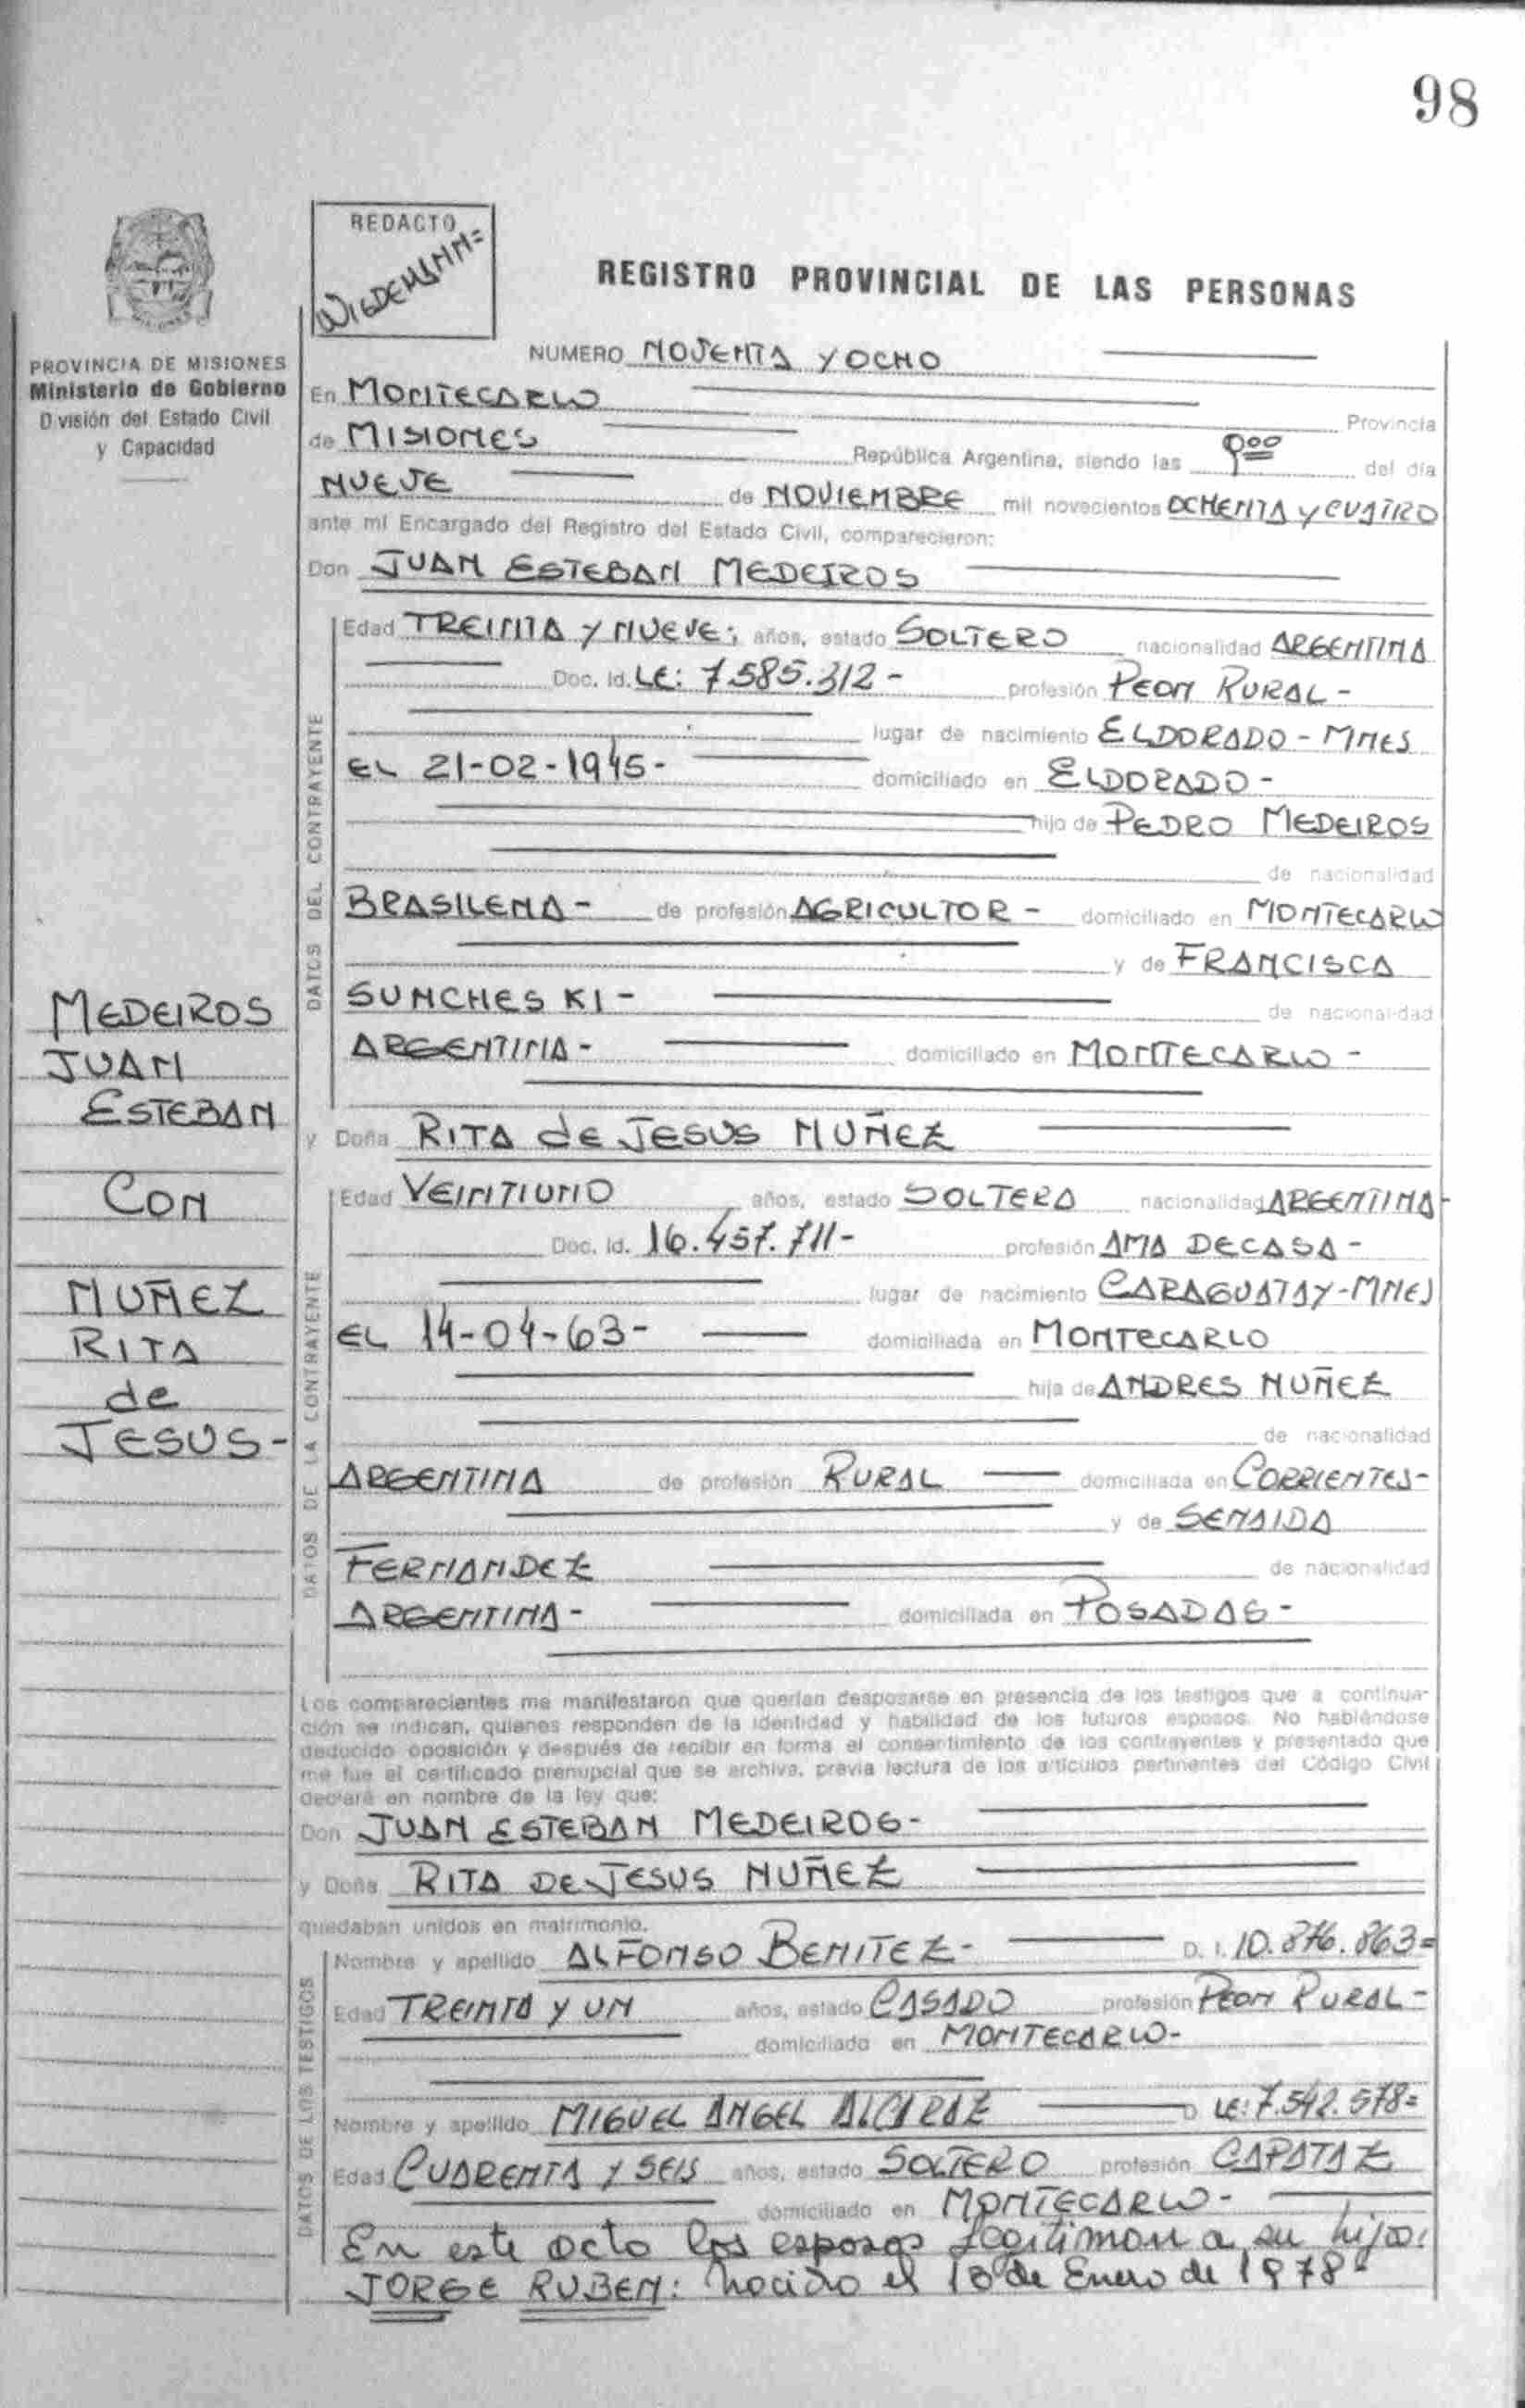 98
REDACTO
REGISTRO PROVINCIAL DE LAS PERSONAS
PROVINCIA DE MISIONES
Ministerio de Gobierno
División del Estado Civil
y Capacidad
NUMERO NOVENTA Y OCHO
En MONTECARLO Provincia
de MISIONES República Argentina, siendo las 900 del día
NUEVE de NOVIEMBRE mil novecientos OCHENTA Y CUATRO
ante mí Encargado del Registro del Estado Civil, comparecieron:
Don JUAN ESTEBAN MEDEIROS
DATOS DEL CONTRAYENTE
Edad TREINTA Y NUEVE; años, estado SOLTERO nacionalidad ARGENTINA
Doc. Id. LE: 7.585.312- profesión PEON RURAL-
lugar de nacimiento ELDORADO-MNES
EL 21-02-1945- domiciliado en ELDORADO-
hijo de PEDRO MEDEIROS
de nacionalidad
BRASILENA- de profesión AGRICULTOR- domiciliado en MONTECARLO
y de FRANCISCA
SUNCHESKI- de nacionalidad
ARGENTINA- domiciliado en MONTECARLO-
y Doña RITA de JESUS NUÑEZ
DATOS DE LA CONTRAYENTE
Edad VEINTIUNO años, estado SOLTERA nacionalidad ARGENTINA-
Doc. Id. 16.457.711- profesión AMA DE CASA-
lugar de nacimiento CARAGUATAY-MNES
EL 14-04-63- domiciliada en MONTECARLO
hija de ANDRES NUÑEZ
de nacionalidad
ARGENTINA de profesión RURAL domiciliada en CORRIENTES-
y de SENAIDA
FERNANDEZ de nacionalidad
ARGENTINA- domiciliada en POSADAS-
MEDEIROS
JUAN
ESTEBAN
CON
NUÑEZ
RITA
de
JESUS-
Los comparecientes me manifestaron que querían desposarse en presencia de los testigos que a continua-
ción se indican, quienes responden de la identidad y habilidad de los futuros esposos. No habiéndose
deducido oposición y después de recibir en forma el consentimiento de los contrayentes y presentado que
me fue el certificado prenupcial que se archiva, previa lectura de los artículos pertinentes del Código Civil
declaré en nombre de la ley que:
Don JUAN ESTEBAN MEDEIROS-
y Doña RITA DE JESUS NUÑEZ
quedaban unidos en matrimonio.
DATOS DE LOS TESTIGOS
Nombre y apellido ALFONSO BENITEZ- D. I. 10.876.863=
Edad TREINTA Y UN años, estado CASADO profesión PEON RURAL-
domiciliado en MONTECARLO-
Nombre y apellido MIGUEL ANGEL ALCARAZ D LE: 7.542.578=
Edad CUARENTA Y SEIS años, estado SOLTERO profesión CAPATAZ
domiciliado en MONTECARLO-
En este acto los esposos legitiman a su hijo:
JORGE RUBEN: nacido el 18 de Enero de 1978-